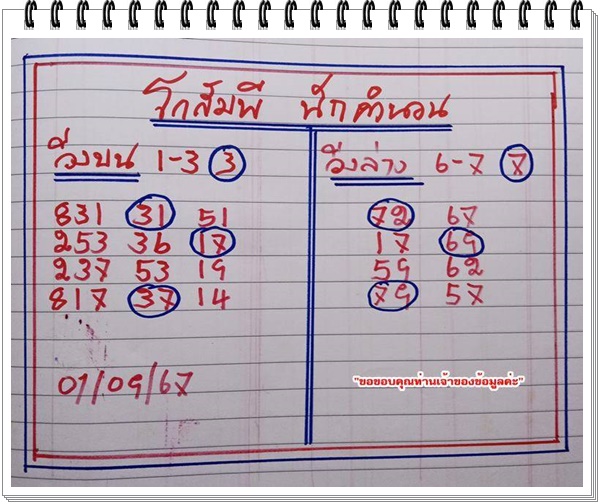 โกสัมพี นักคำนวน
วิ่งบน 1-3 3
831 31 51
253 36 17
237 53 19
817 37 14
01/09/67
วิ่งล่าง 6-7 7
72 67
17 69
59 62
79 57
"ขอขอบคุณท่านเจ้าของข้อมูลค่ะ"